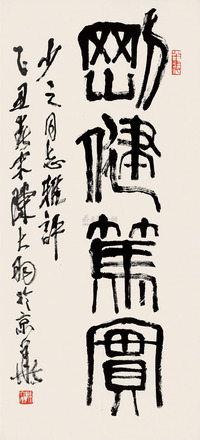 剛健篤實
少之同志雅評
乙丑春末陳大羽於京華